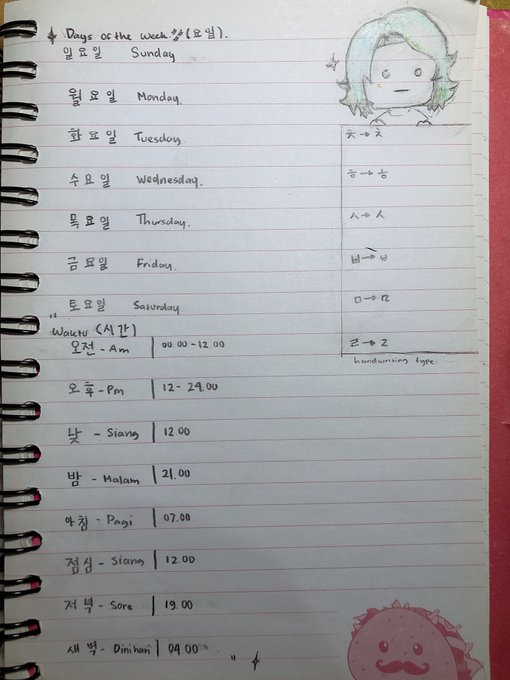 Days of the Week (요일).
일요일 Sunday
월요일 Monday.
화요일 Tuesday.
수요일 Wednesday.
목요일 Thursday.
금요일 Friday.
토요일 Saturday
ㅊ → ㅊ
ㅎ → ㅎ
ㅅ → ㅅ
ㅂ → ㅂ
ㅁ → ㅁ
ㄹ → ㄹ
handwriting type
Waktu (시간)
오전 - Am | 00.00 - 12.00
오후 - Pm | 12 - 24.00
낮 - Siang | 12.00
밤 - Malam | 21.00
아침 - Pagi | 07.00
점심 - Siang | 12.00
저녁 - Sore | 19.00
새벽 - Dinihari | 04.00